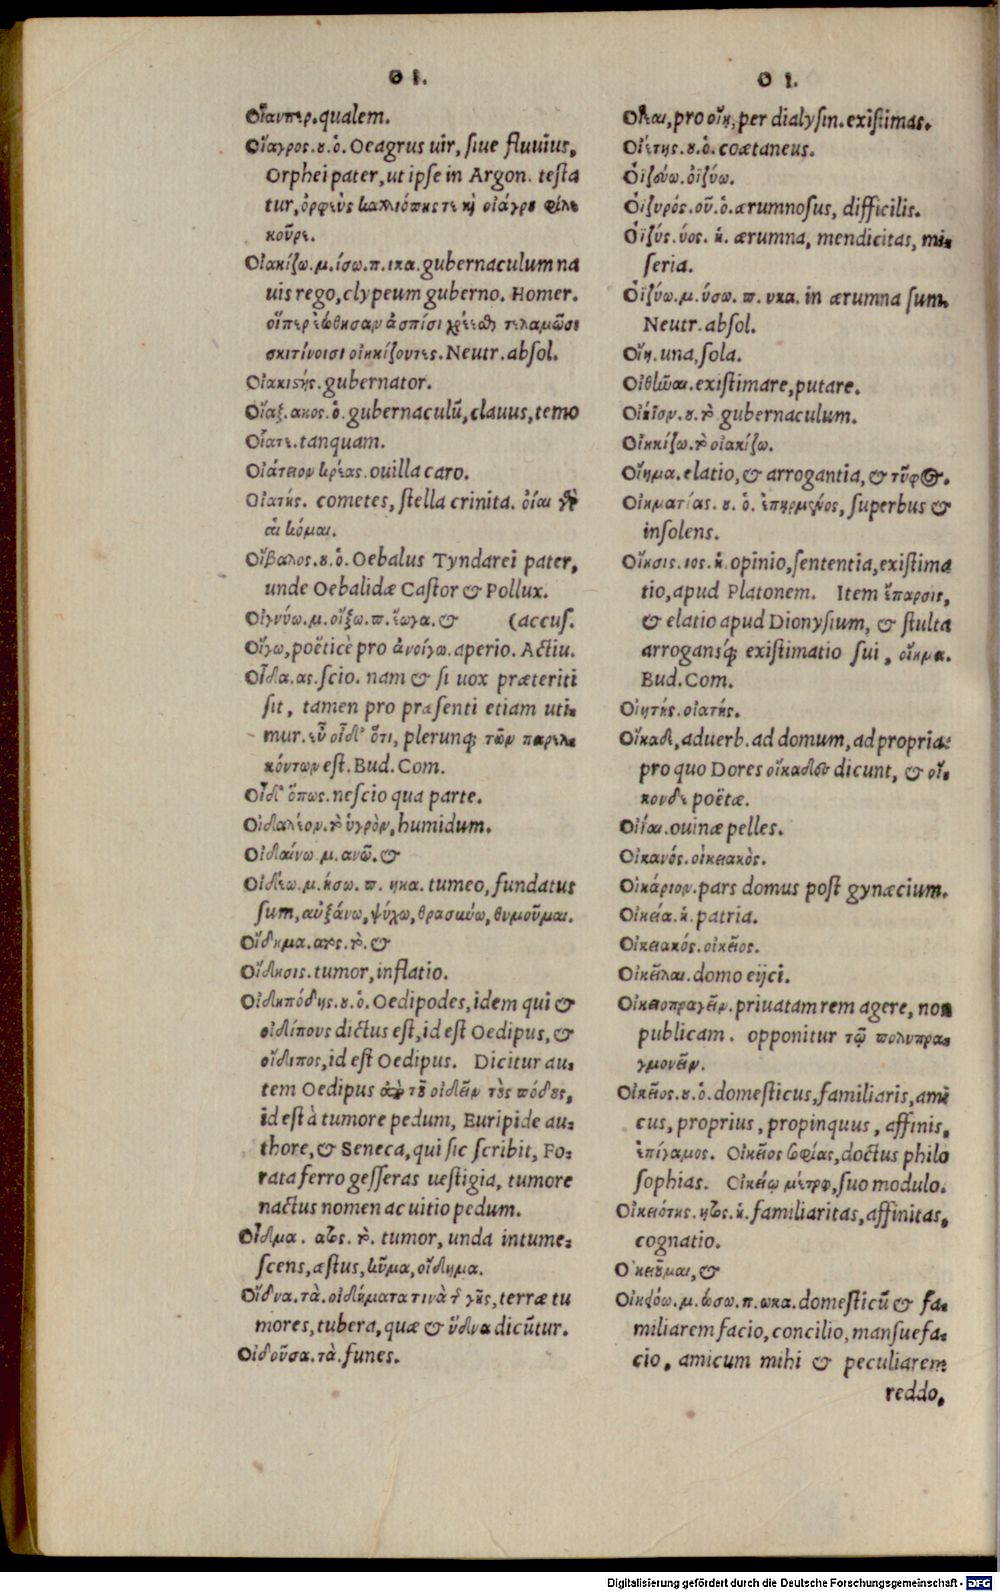 Ο Ι.
Οἵανπερ. qualem.
Οἴαγρος. ȣ. ὁ. Oeagrus uir, ſiue fluuius,
Orphei pater, ut ipſe in Argon. teſta
tur, ὀρφεὺς καλλιόπης τε κỳ οἰάγρȣ φίλε
κοῦρε.
Οἰακίζω. μ. ίσω. π. ικα. gubernaculum na
uis rego, clypeum guberno. Homer.
οἵπερ εἰώθησαν ἀσπίσι χρέεσθ τελαμῶσι
σκιτίνοισι οἰηκίζοντες. Neutr. abſol.
Οἰακιςής. gubernator.
Οἴαξ. ακος. ὁ. gubernaculũ, clauus, temo
Οἷατε. tanquam.
Οἰάτειον κρέας. ouilla caro.
Οἰατής. cometes, ſtella crinita. ὀίαι γὰρ
αἱ κόμαι.
Οἴβαλος. ȣ. ὁ. Oebalus Tyndarei pater,
unde Oebalidæ Caſtor & Pollux.
Οἰγνύω. μ. οἴξω. π. ἔωγα. & (accuſ.
Οἴγω, poëticè pro ἀνοίγω. aperio. Actiu.
Οἶδα. ας. ſcio. nam & ſi uox præteriti
ſit, tamen pro præſenti etiam uti-
mur. εὖ οἶδ᾽ ὅτι, plerunq; τῶν παρελκ
κόντων eſt. Bud. Com.
Οἶδ᾽ ὅπως. neſcio qua parte.
Οἰδαλέον. τὸ ὑγρὸν, humidum.
Οἰδαίνω. μ. ανῶ. &
Οἰδέω. μ. ήσω. π. ηκα. tumeo, fundatus
ſum, αὐξάνω, ψύχω, θρασύνω, θυμοῦμαι.
Οἴδημα. ατος. τὸ. &
Οἴδησις. tumor, inflatio.
Οἰδιπόδης. ȣ. ὁ. Oedipodes, idem qui &
οἰδίπους dictus eſt, id eſt Oedipus, &
οἴδιπος, id eſt Oedipus. Dicitur au-
tem Oedipus ἀπὸ τȣ̃ οἰδεῖν τȣ̀ς πόδȣς,
id eſt à tumore pedum, Euripide au-
thore, & Seneca, qui ſic ſcribit, Fo-
rata ferro geſſeras ueſtigia, tumore
nactus nomen ac uitio pedum.
Οἶδμα. ατος. τὸ. tumor, unda intume-
ſcens, æſtus, κῦμα, οἴδημα.
Οἴδνα. τὰ. οἰδήματα τινὰ τ͂ γῆς, terræ tu
mores, tubera, quæ & ὕδνα dicũtur.
Οἰδοῦσα. τὰ. funes.
Ο Ι.
Οἴεαι, pro οἴῃ, per dialyſin. exiſtimas.
Οἰέτης. ȣ. ὁ. coætaneus.
Ὀϊζούω. ὀϊζύω.
Ὀϊζυρός. οῦ. ὁ. ærumnoſus, difficilis.
Ὀϊζύς. ύος. ἡ. ærumna, mendicitas, mi-
ſeria.
Ὀϊζύω. μ. ύσω. π. υκα. in ærumna ſum.
Neutr. abſol.
Οἴη. una, ſola.
Οἰηθῆναι. exiſtimare, putare.
Οἰήϊον. ȣ. τὸ gubernaculum.
Οἰηκίζω. τὸ οἰακίζω.
Οἴημα. elatio, & arrogantia, & τῦφος.
Οἰηματίας. ȣ. ὁ. ἐπηρμένος, ſuperbus &
inſolens.
Οἴησις. ιος. ἡ. opinio, ſententia, exiſtima
tio, apud Platonem. Item ἔπαρσις,
& elatio apud Dionyſium, & ſtulta
arrogansq́; exiſtimatio ſui, οἴημα.
Bud. Com.
Οἰητής. οἰατής.
Οἴκαδε, aduerb. ad domum, ad propria:
pro quo Dores οἴκαδις dicunt, & οἶ-
κονδε poëtæ.
Οἴϊαι. ouinæ pelles.
Οἰκανός. οἰκειακὸς.
Οἰκάριον. pars domus poſt gynæcium.
Οἰκεία. ἡ. patria.
Οἰκειακός. οἰκεῖος.
Οἰκεῖλαι. domo eijci.
Οἰκειοπραγεῖν. priuatam rem agere, non
publicam. opponitur τῷ πολυπρα-
γμονεῖν.
Οἰκεῖος. ȣ. ὁ. domeſticus, familiaris, ami
cus, proprius, propinquus, affinis,
ἐπίγαμος. Οἰκεῖος σοφίας, doctus philo
ſophias. Οἰκείῳ μέτρῳ, ſuo modulo.
Οἰκειότης. ητος. ἡ. familiaritas, affinitas,
cognatio.
Οἰκειοῦμαι, &
Οἰκειόω. μ. ώσω. π. ωκα. domeſticũ & fa-
miliarem facio, concilio, manſuefa-
cio, amicum mihi & peculiarem
reddo,
Digitalisierung gefördert durch die Deutsche Forschungsgemeinschaft - DFG